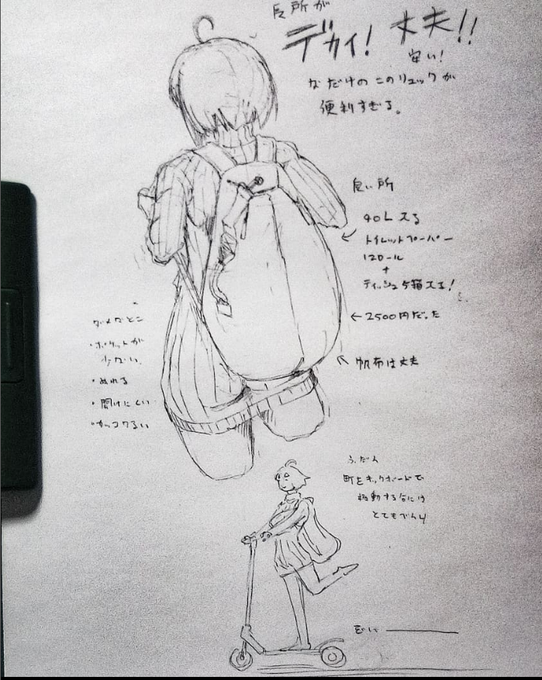 長所が
デカイ! 丈夫!!
安い!
なだけの このリュックが
便利すぎる。
良い所
40L入る
トイレットペーパー
12ロール
+
ティッシュ5箱入る!
←2500円だった
帆布は丈夫
ダメなとこ
・ポケットが
少ない
・ぬれる
・開けにくい
・カッコワるい
ふだん
町をキックボードで
移動する分には
とてもべんり